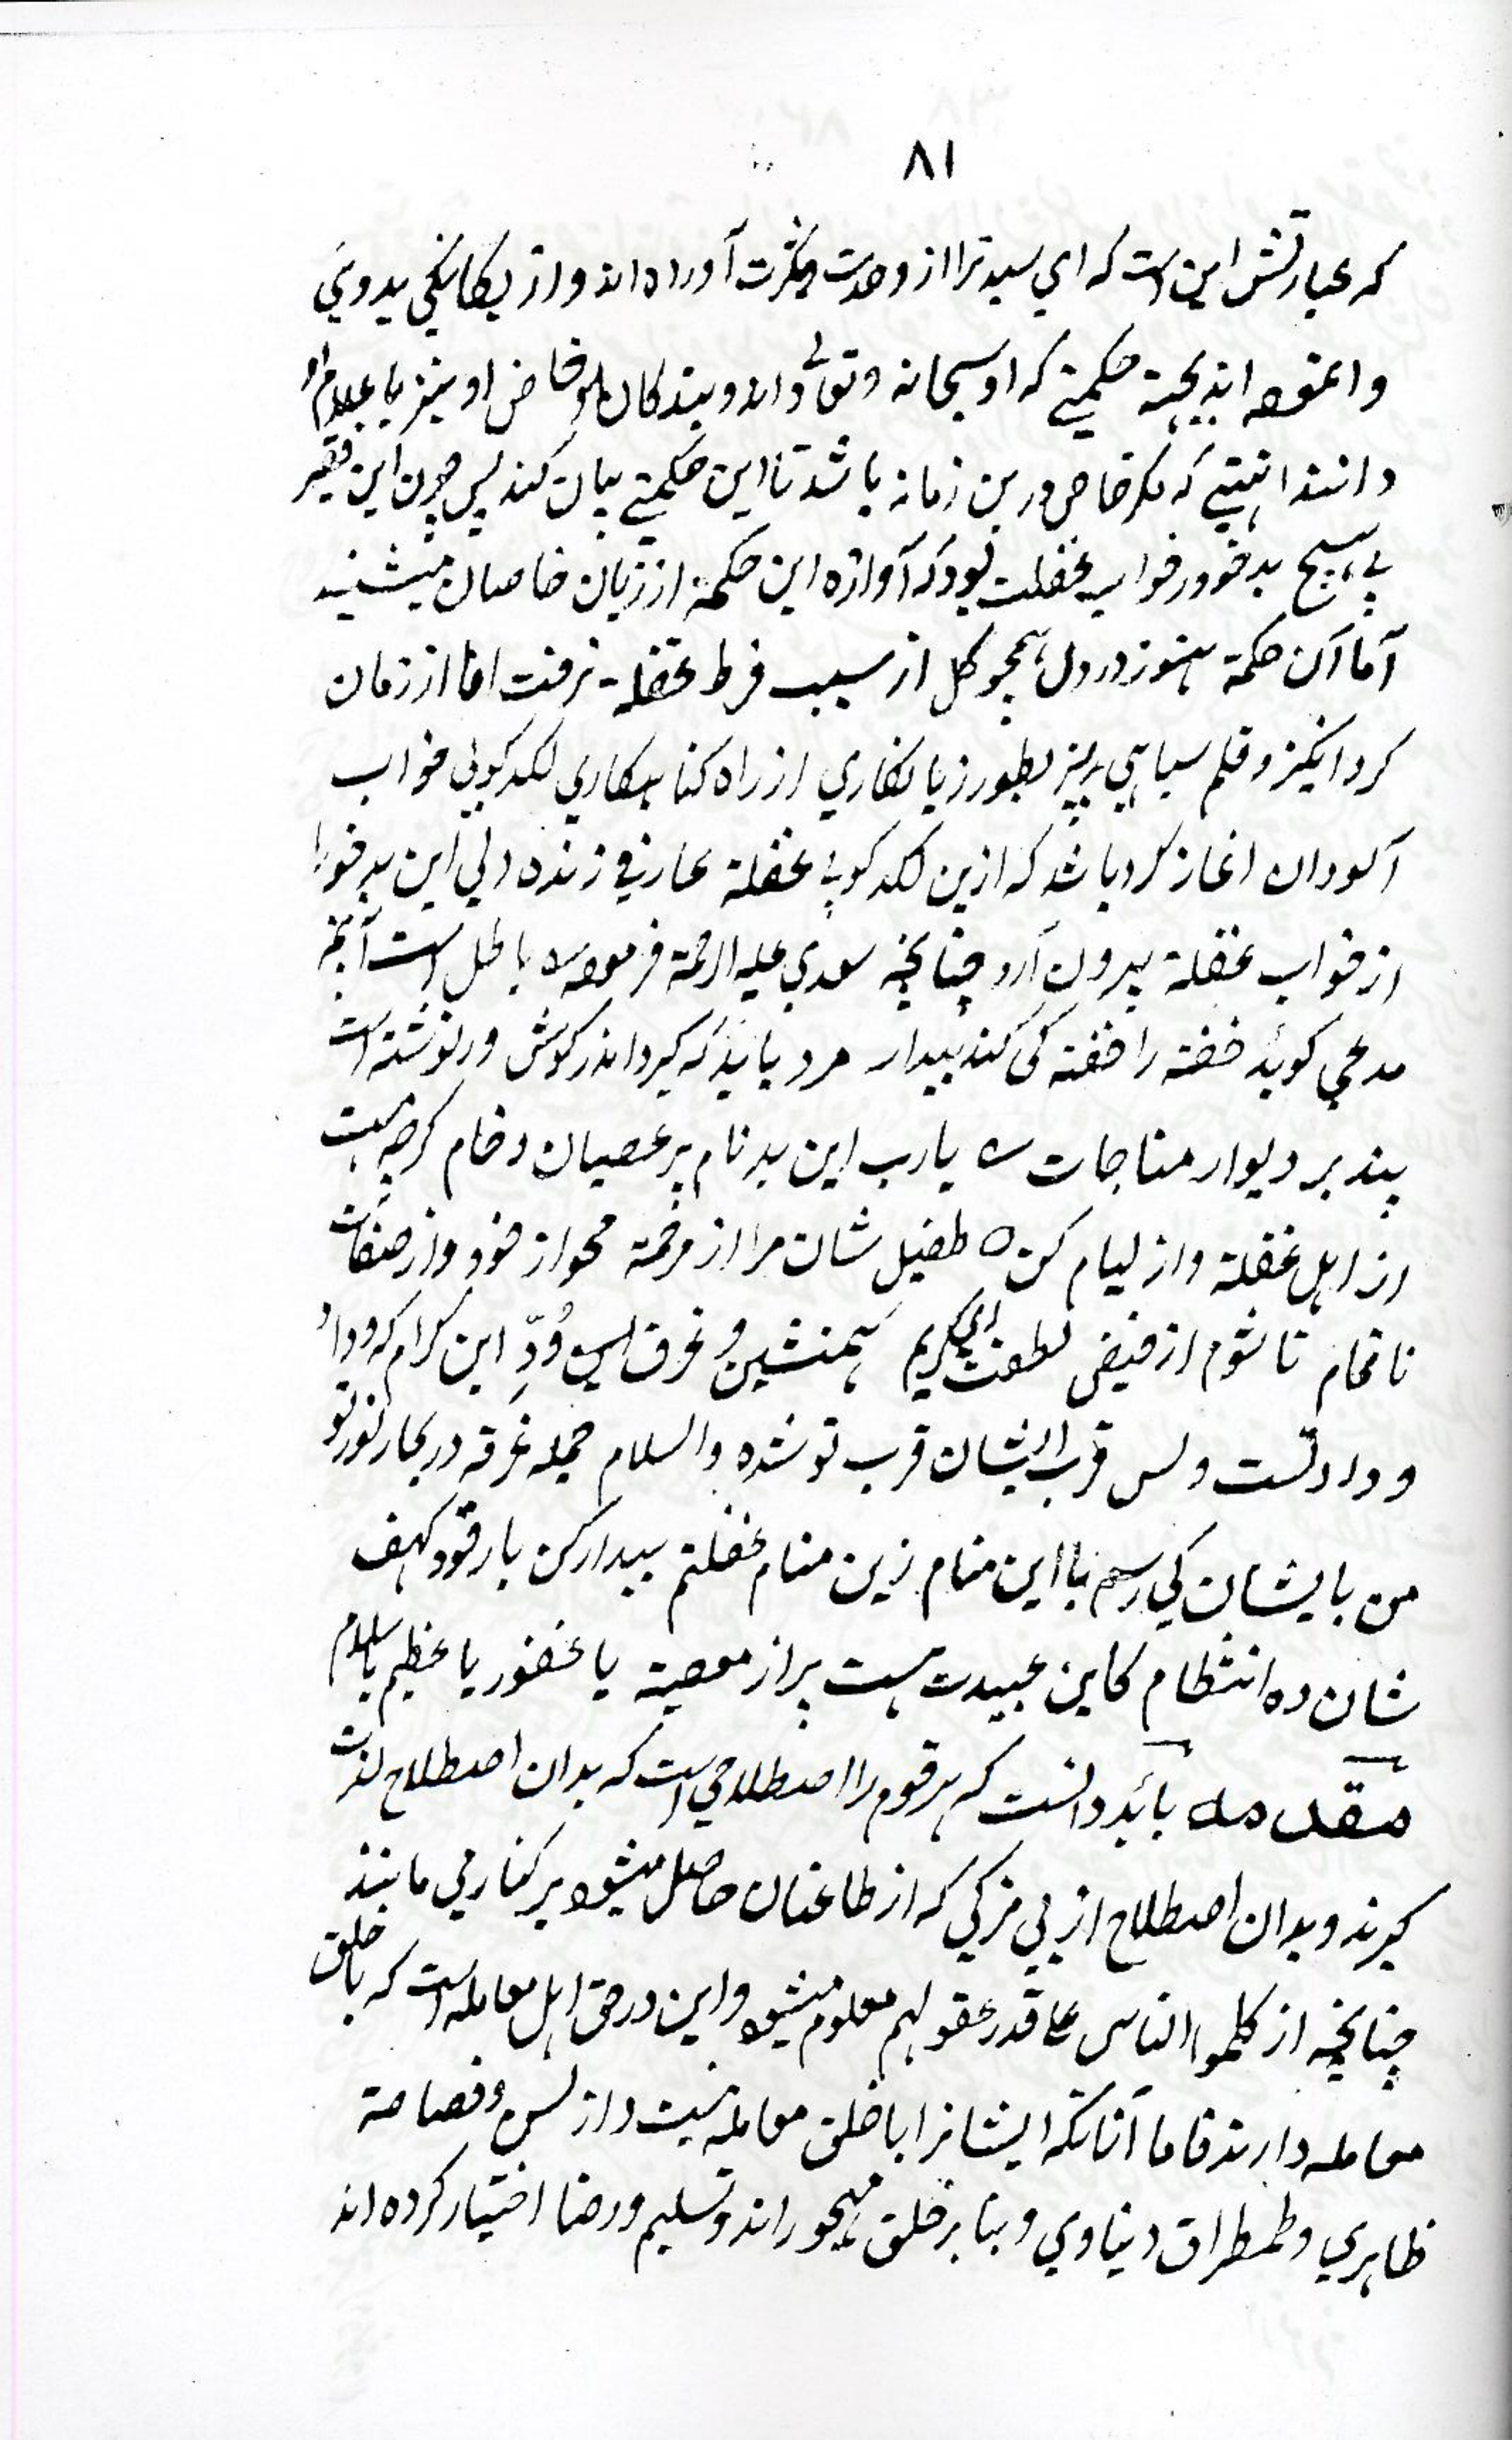 ۸۱
که عبارتش این است که ای سید ترا از وحدت بکثرت آورده اند و از یکانکی بدوئی
و انموده اند بجهة حکمتے که او سبحانه و تعالی داند و بندکان خاص او نیز باعلام او
دانند انیتے که مکر خاص درین زمانه باشد تا این حکمتے بیان کند پس چون این فقیر
بی هیچ بدخو در خواب غفلت بود که آوازه این حکمة از زبان خاصان میشنید
آما آن حکمة هنوز در دل همچو کل از سبب فرط غفلة نرفت اما از زمان
کرد انکیز و قلم سیاهی ریز بطور زیانکاری از راه کناهکاری لکدکوبی خواب
آلودان اغاز کرد باشد که ازین لکد کوبی غفلة عارفی زنده دلی این بدخو را
از خواب غفلة بیرون آرد چنانچه سعدی علیه الرحمة فرموده ؎ باطل است آنچه
مدعی کوید خفته را خفته کی کند بیدار مرد باید که کیرد اندر کوش ور نوشته است
پند بر دیوار مناجات ؎ یارب این بدنام پر عصیان و خام کرچه هست
از اهل غفلة و از لیام کن ه طفیل شان مرا از مرحمة محو از خود و از صفات
ناتمام تا شوم از فیض لطفت ای کریم همنشین و غرق وُدِّ این کرام که وداد
وداد تست و بس قرب ایشان قرب تو شده والسلام جمله غرقه در بحار نور تو
من بایشان کی رسم با این منام زین منام غفلتم بیدار کن با رقود کهف
شان ده انتظام کاین عبیدت هست پر از معصیة یا غفور یا عظیم یا سلام
مقدمه بائد دانست که هر قوم را اصطلاحی است که بدان اصطلاح لذت
کیرند و بدان اصطلاح از بی مزکی که از طاعنان حاصل میشود بر کناری مانند
چنانچه از کلموا الناس علی قدر عقولهم معلوم میشود و این در حق اهل معامله است که با خلق
معامله دارند فاما آنانکه ایشانرا با خلق معامله نیست و از لسن و فصاحة
ظاهری و طمطراق دنیاوی و بنا بر خلق مهجور اند و تسلیم و رضا اختیار کرده اند